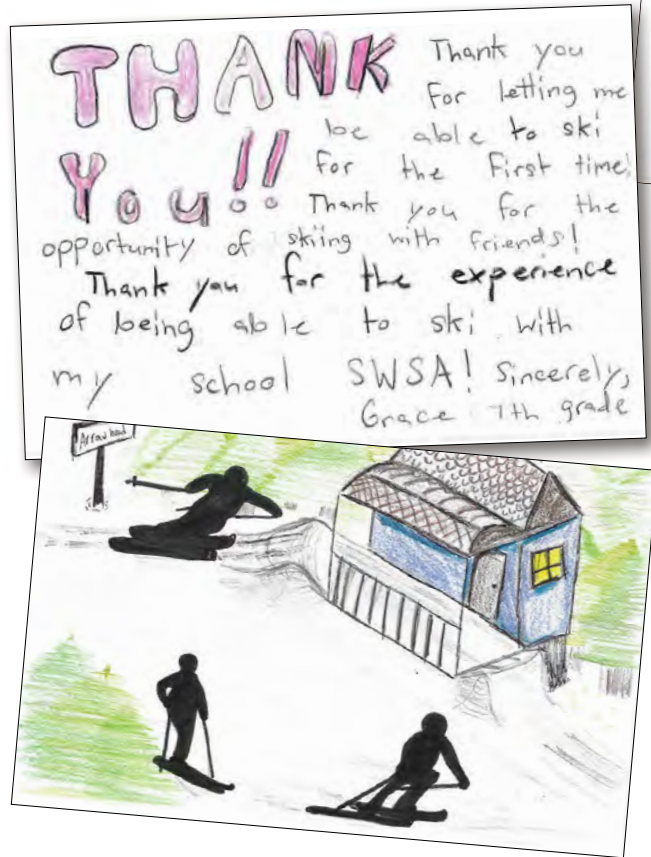 THANK
You!!
Thank you
For letting me
be able to ski
For the First time!
Thank you for the
opportunity of skiing with friends!
Thank you for the experience
of being able to ski with
my school SWSA! Sincerely,
Grace 7th grade
Arrowhead